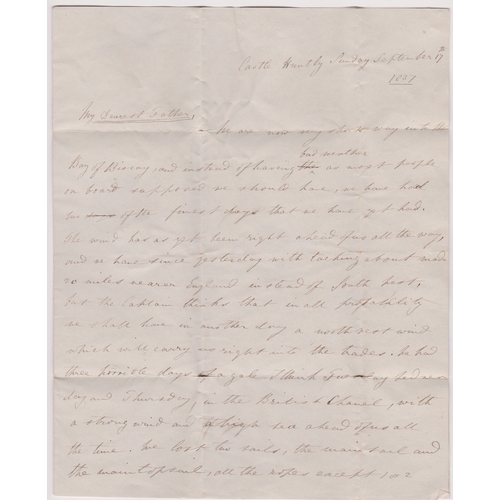 Castle Huntly Sunday September 17th
1837
My Dearest Father,
— We are now my she to way into the
bad weather
Bay of Biscay, and instead of having as most people
on board supposed we should have, we have had
one of the finest days that we have yet had.
The wind has as yet been right ahead of us all the way,
and we have since yesterday with tacking about made
20 miles nearer England instead of South West,
but the Captain thinks that in all probability
we shall have in another day a north west wind
which will carry us right into the trades. We had
three horrible days of a gale I think
day and Thursday, in the British Chanel, with
a strong wind and a high sea ahead of us all
the time. We lost two sails, the mainsail and
the maintopsail, all the ropes except 1 or 2